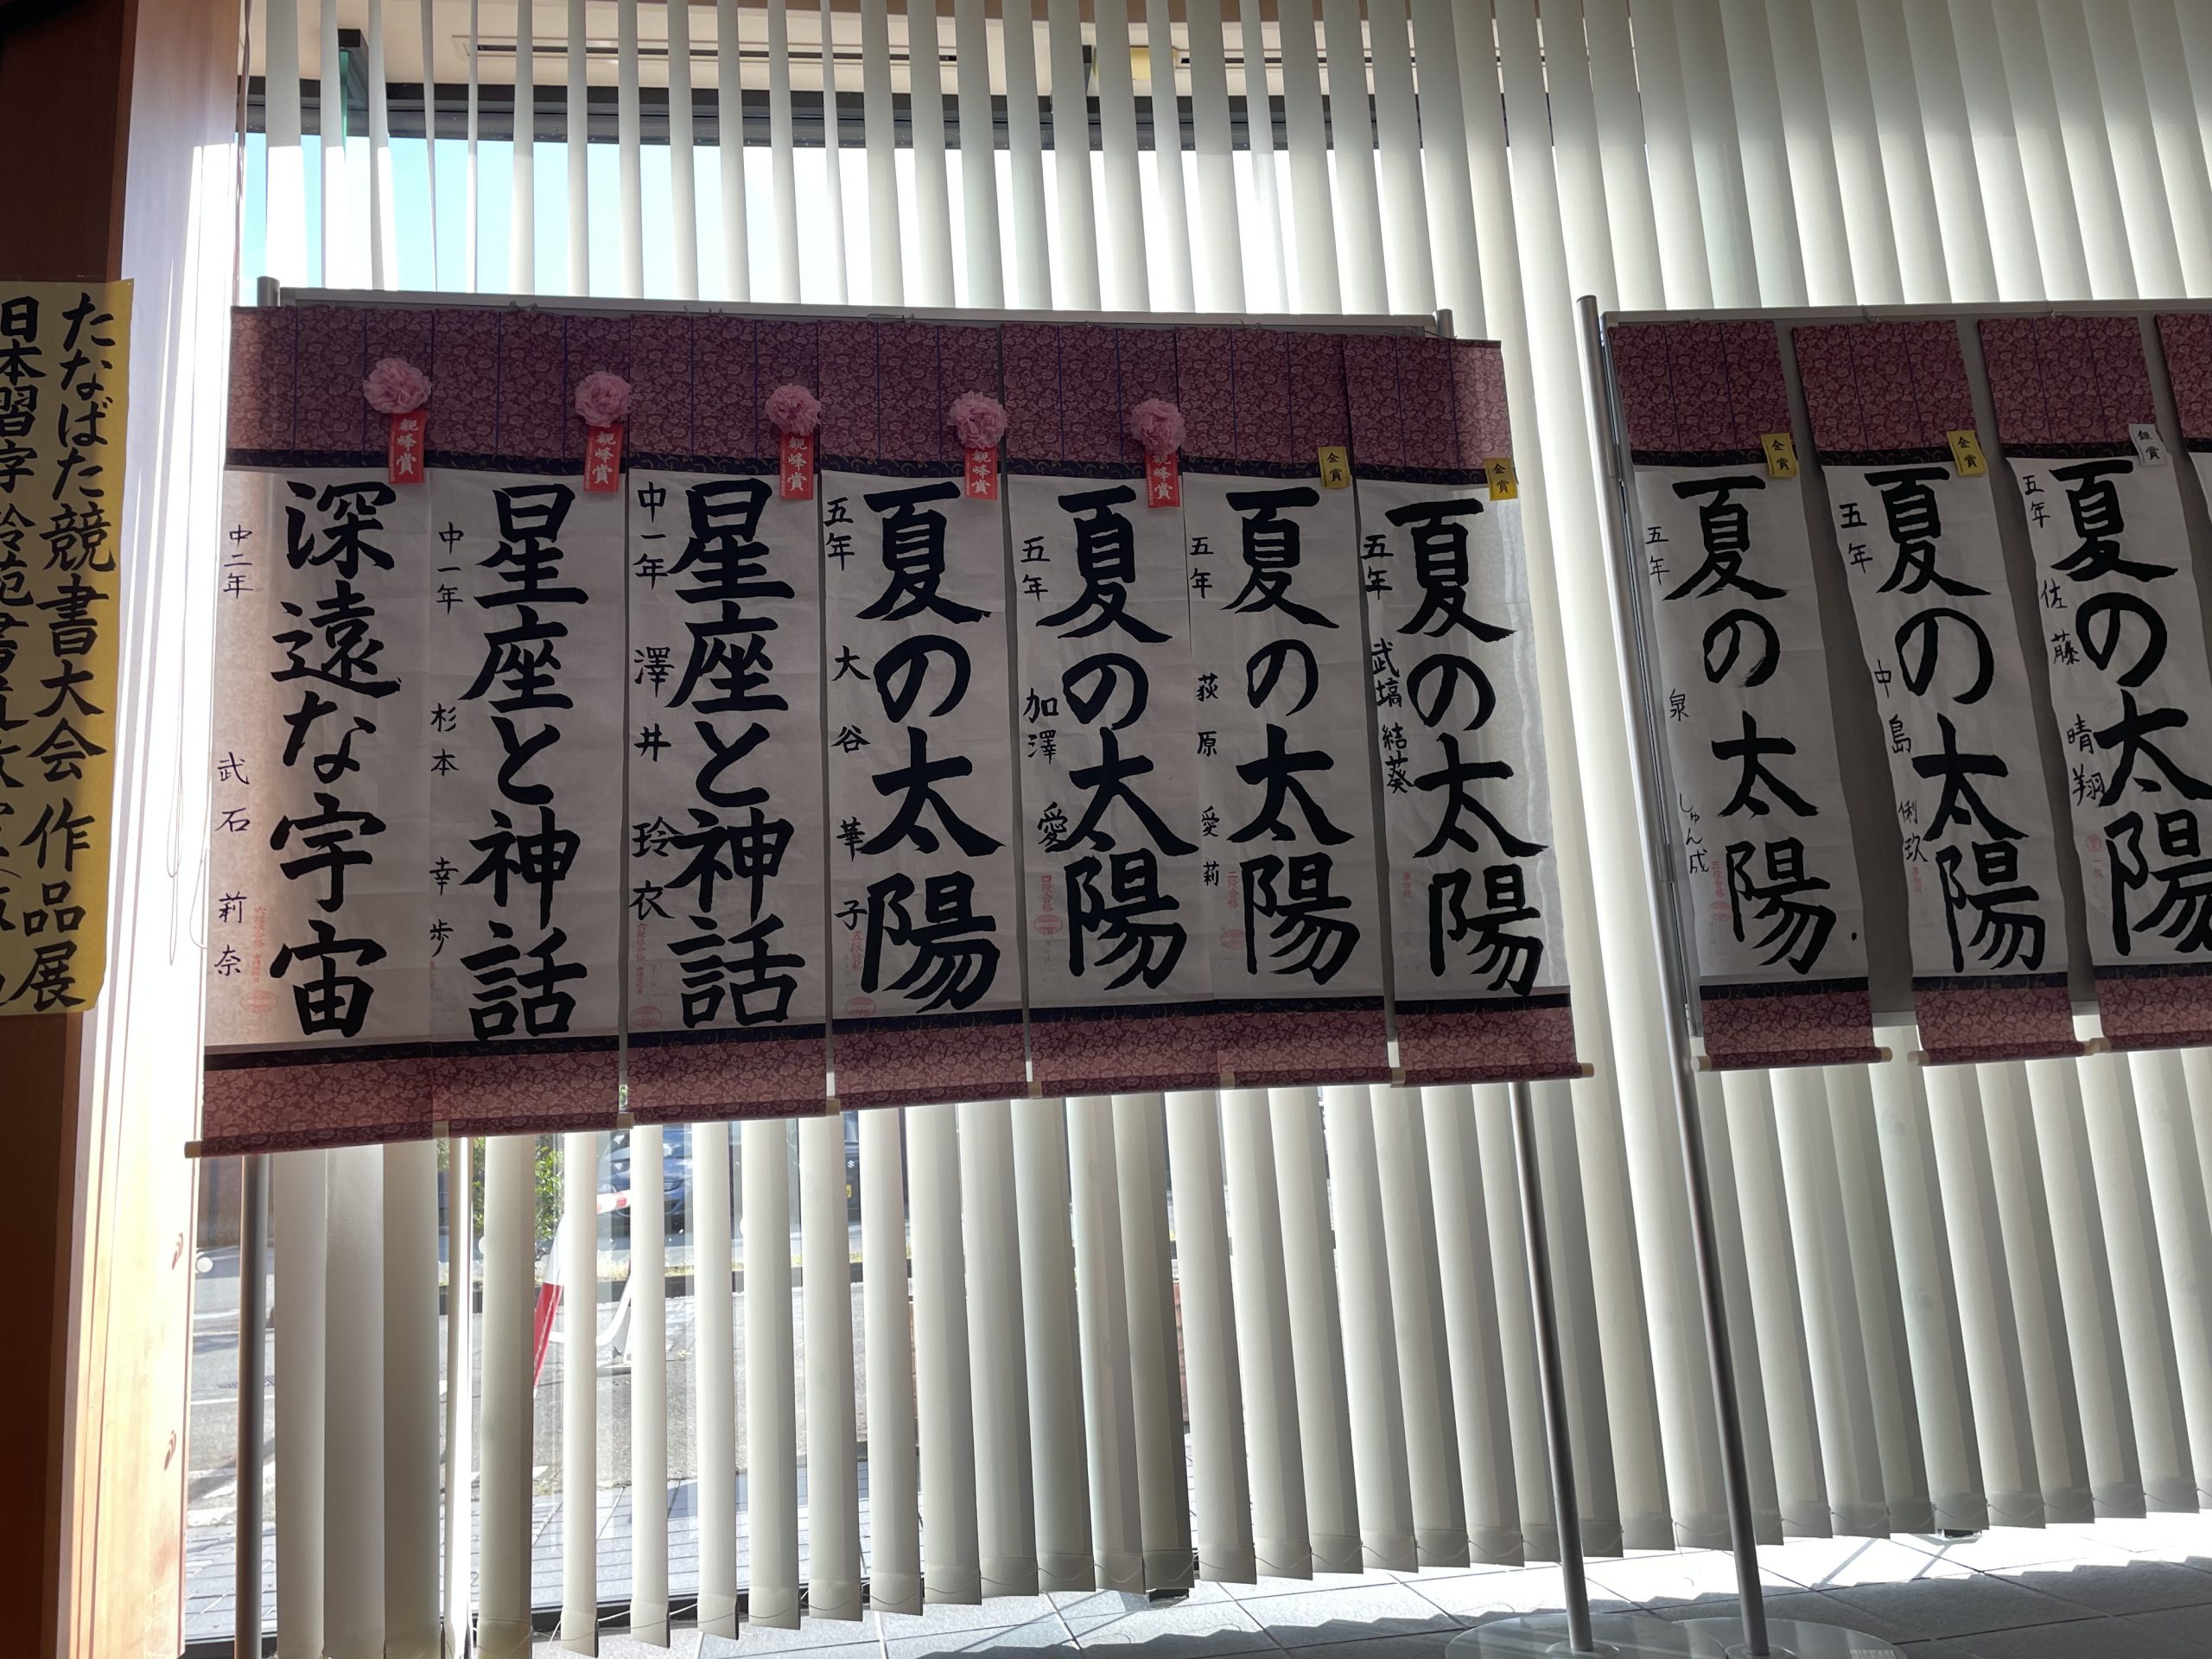 たなばた競書大会 作品展
日本習字
観峰賞
深遠な宇宙
中二年 武石 莉奈
観峰賞
星座と神話
中一年 杉本 幸歩
観峰賞
星座と神話
中一年 澤井 玲衣
観峰賞
夏の太陽
五年 大谷 華子
観峰賞
夏の太陽
五年 加澤 愛
金賞
夏の太陽
五年 荻原 愛莉
金賞
夏の太陽
五年 武塙 結葵
金賞
夏の太陽
五年 泉 しゅん成
金賞
夏の太陽
五年 中島 俐玖
銀賞
夏の太陽
五年 佐藤 晴翔